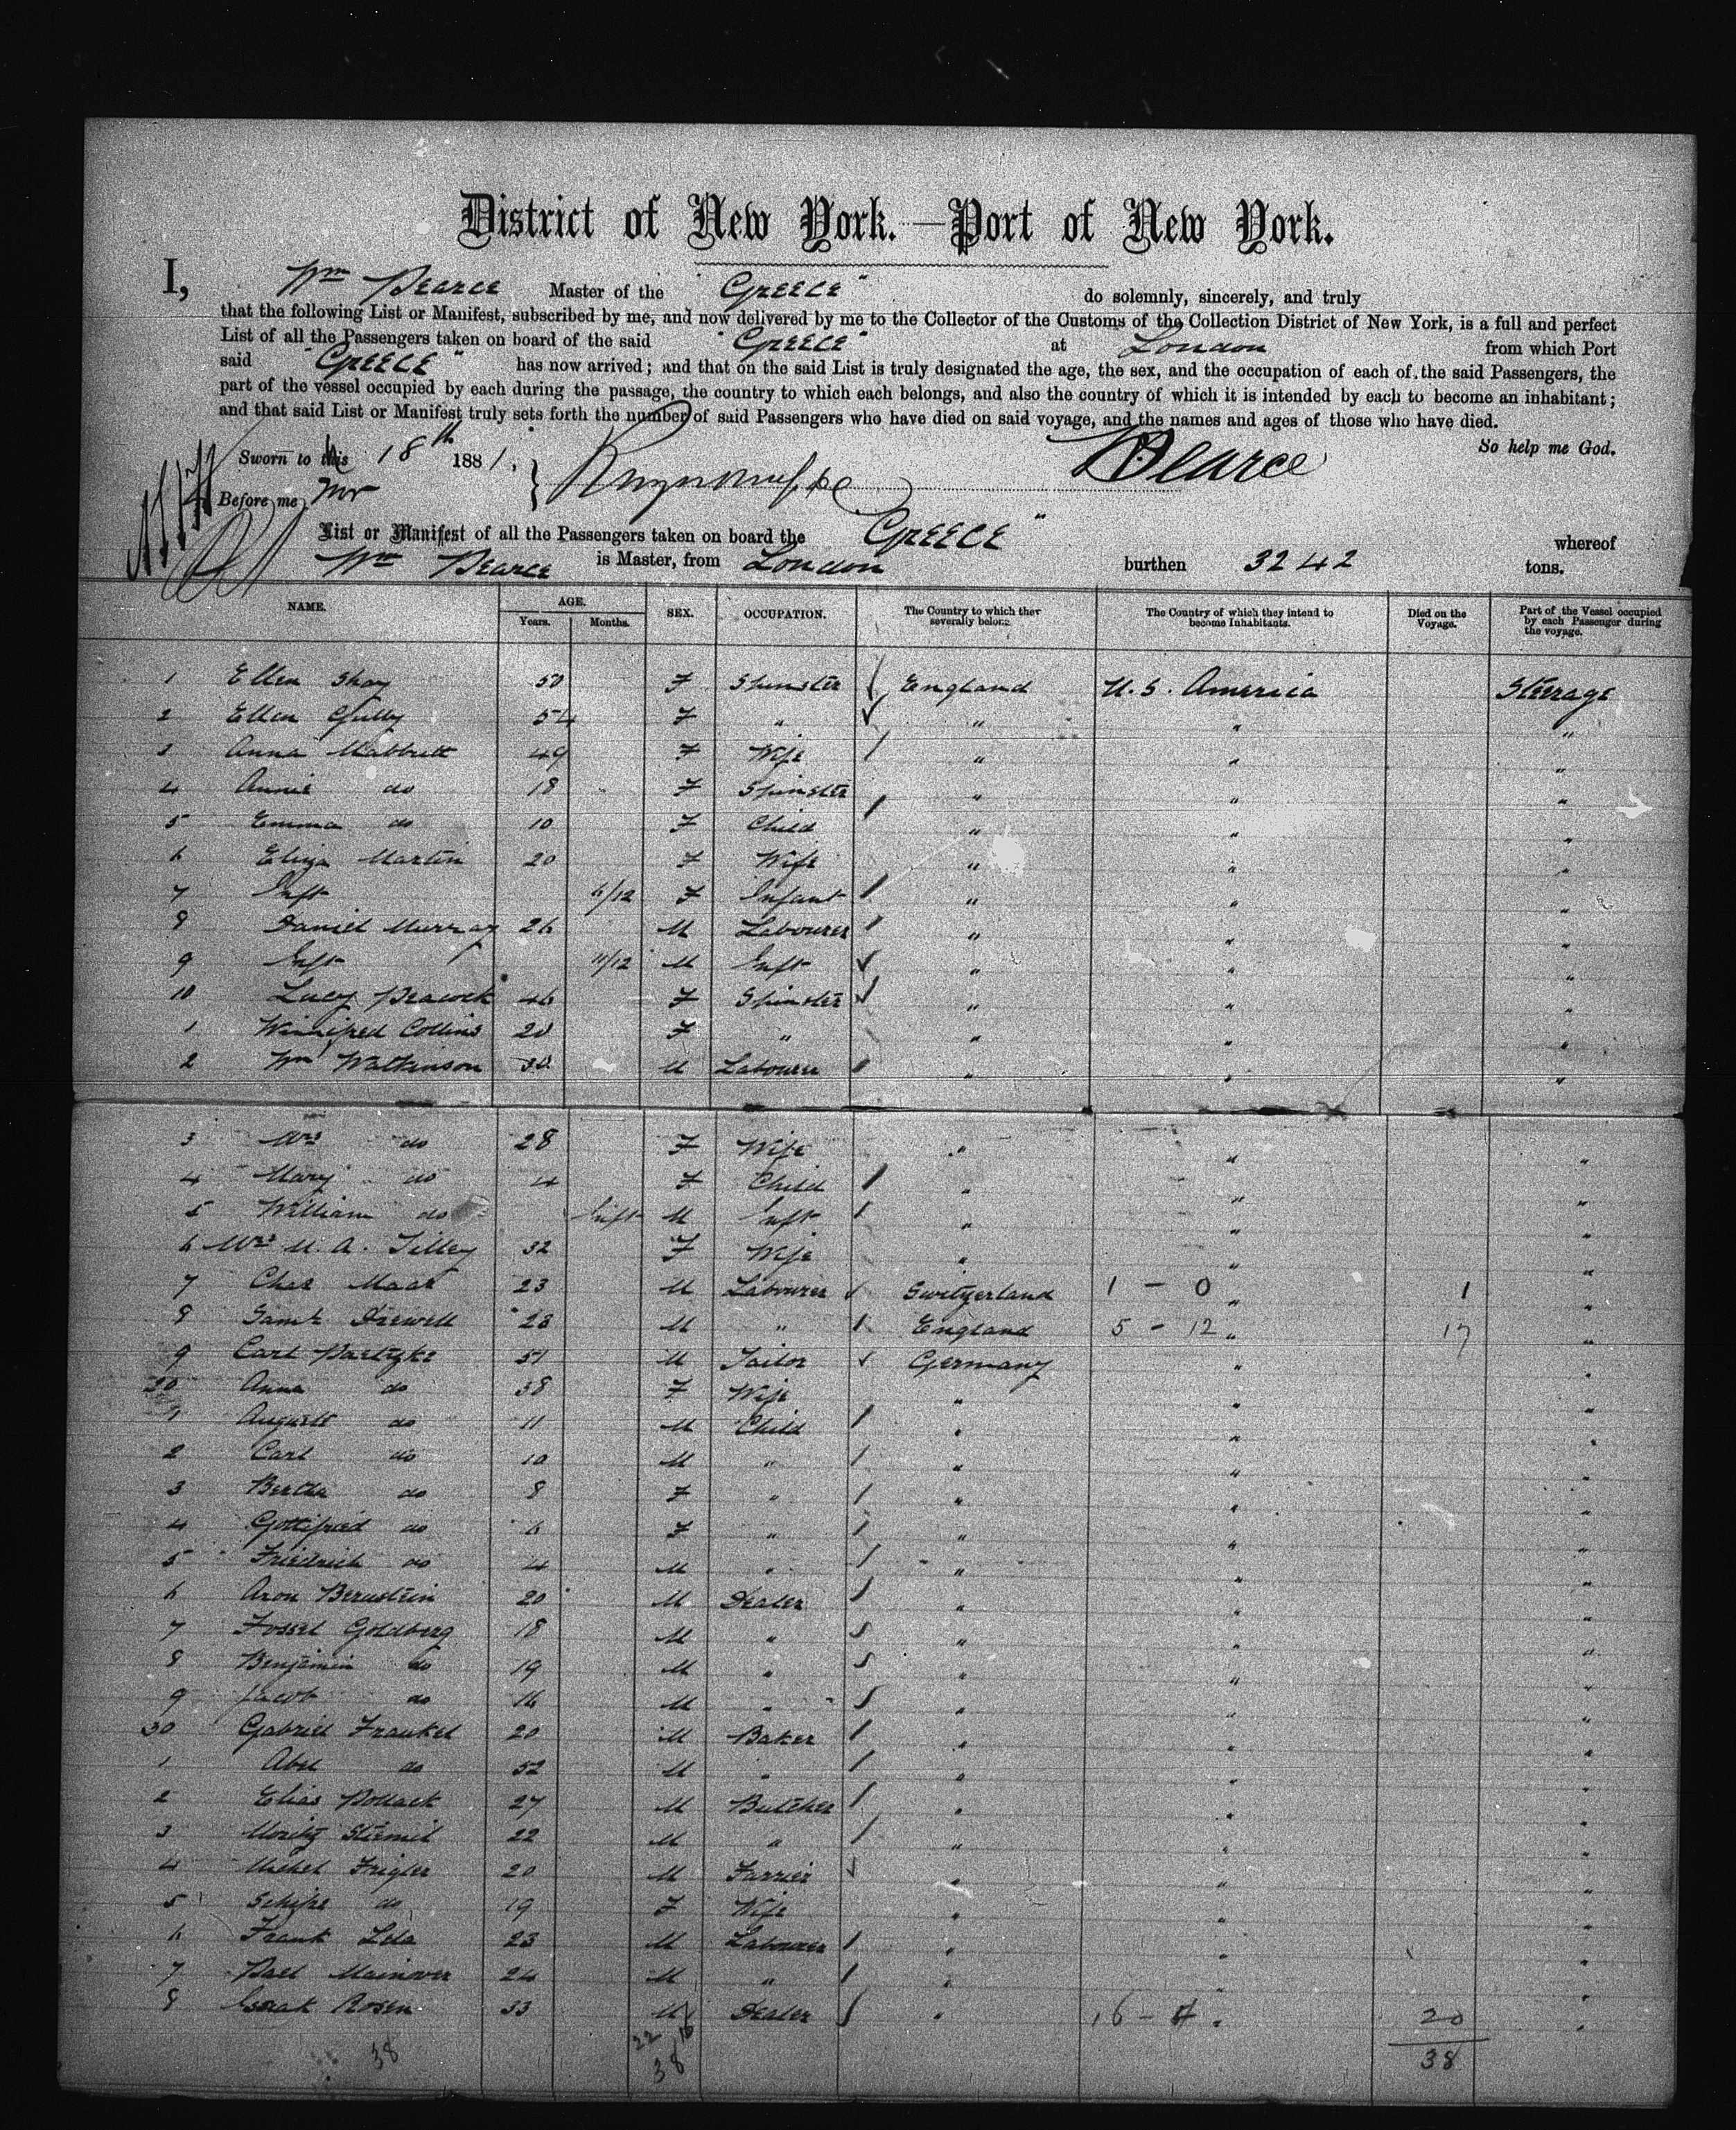 District of New York.—Port of New York.
I, Wm Pearce Master of the "Greece" do solemnly, sincerely, and truly
that the following List or Manifest, subscribed by me, and now delivered by me to the Collector of the Customs of the Collection District of New York, is a full and perfect
List of all the Passengers taken on board of the said "Greece" at London from which Port
said "Greece" has now arrived; and that on the said List is truly designated the age, the sex, and the occupation of each of the said Passengers, the
part of the vessel occupied by each during the passage, the country to which each belongs, and also the country of which it is intended by each to become an inhabitant;
and that said List or Manifest truly sets forth the number of said Passengers who have died on said voyage, and the names and ages of those who have died.
So help me God.
Sworn to this 18th 1881.
W Pearce
Before me
List or Manifest of all the Passengers taken on board the "Greece" whereof
Wm Pearce is Master, from London burthen 3242 tons.
NAME. AGE. Years. Months. SEX. OCCUPATION. The Country to which they severally belong. The Country of which they intend to become Inhabitants. Died on the Voyage. Part of the Vessel occupied by each Passenger during the voyage.
1 Ellen Shay 50 F Spinster England U.S. America Steerage
2 Ellen Gully 54 F " " " "
3 Anna Mabbutt 49 F Wife " " "
4 Annie do 18 F Spinster " " "
5 Emma do 10 F Child " " "
6 Eliza Martin 20 F Wife " " "
7 Inft 6/12 F Infant " " "
8 Daniel Murray 26 M Labourer " " "
9 Inft 11/12 M Inft " " "
10 Lucy Peacock 46 F Spinster " " "
1 Winnifred Collins 20 F " " " "
2 Wm Watkinson 30 M Labourer " " "
3 Mrs do 28 F Wife " " "
4 Mary do 4 F Child " " "
5 William do Inft M Inft " " "
6 Mrs M. A. Tilley 32 F Wife " " "
7 Chas Maas 23 M Labourer Switzerland 1 - 0 " 1 "
8 Saml Drewell 28 M " England 5 - 12 " 17 "
9 Carl 51 M Tailor Germany " "
20 Anna do 38 F Wife " " "
1 August do 11 M Child " " "
2 Carl do 10 M " " " "
3 Bertha do 8 F " " " "
4 Gottfried do 6 F " " " "
5 Friedrich do 4 M " " " "
6 Aron Bernstein 20 M Dealer " " "
7 Jossel Goldberg 18 M " " " "
8 Benjamin do 19 M " " " "
9 Jacob do 16 M " " " "
30 Gabriel Frankel 20 M Baker " " "
1 Abel do 52 M " " " "
2 Elias Pollack 27 M Butcher " " "
3 Moritz 22 M " " " "
4 Michel 20 M Farrier " " "
5 do 19 F Wife " " "
6 Frank 23 M Labourer " " "
7 24 M " " " "
8 Isaak Rosen 33 M Dealer " 16 - 4 " 20 "
38 22 16 38
38